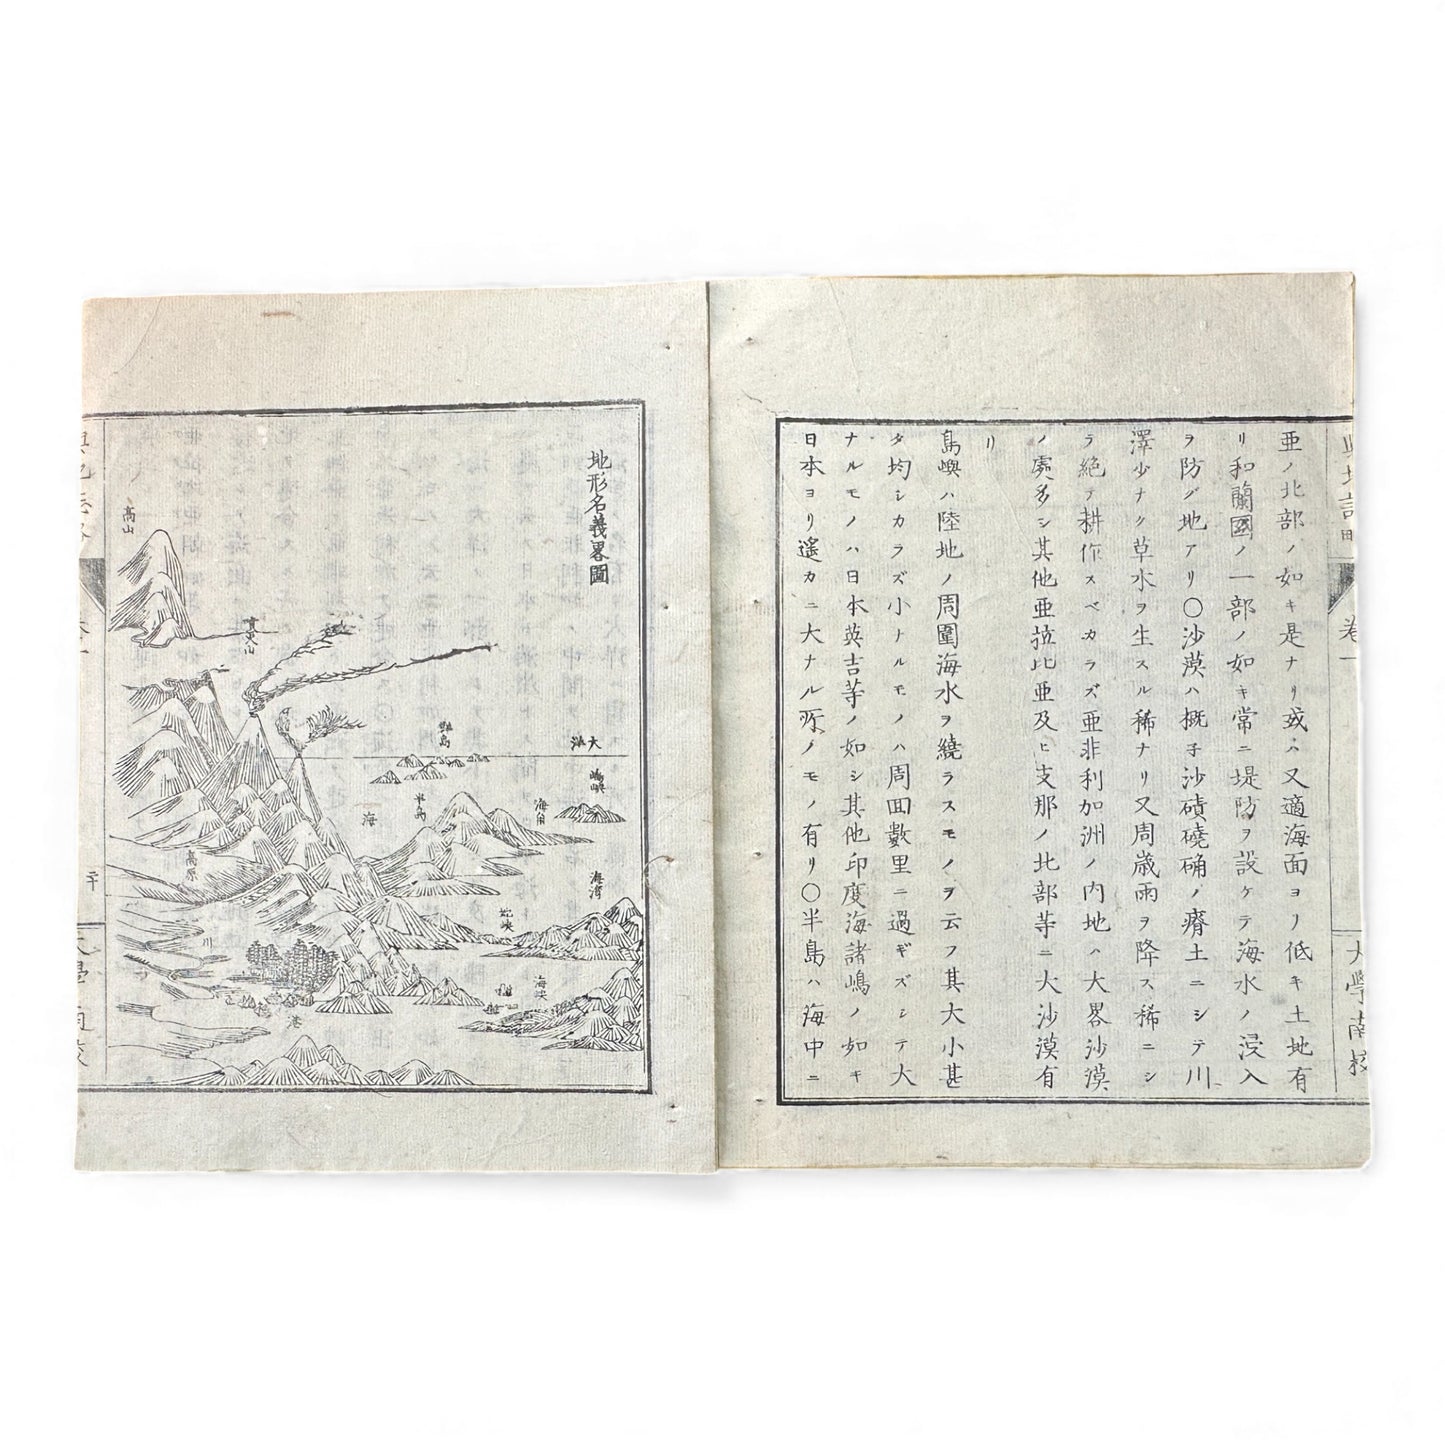 亜ノ北部ノ如キ是ナリ或ハ又適海面ヨリ低キ土地有
リ和蘭國ノ一部ノ如キ常ニ堤防ヲ設ケテ海水ノ浸入
ヲ防グ地アリ〇沙漠ハ概子沙磧磽确ノ瘠土ニシテ川
澤少ナク草木ヲ生スル稀ナリ又周歳雨ヲ降ス稀ニシ
テ絶テ耕作スベカラズ亜非利加洲ノ内地ハ大畧沙漠
ノ處多シ其他亜拉比亜及ヒ支那ノ北部等ニ大沙漠有
リ
島嶼ハ陸地ノ周圍海水ヲ繞ラスモノヲ云フ其大小甚
タ均シカラズ小ナルモノハ周囬數里ニ過ギズシテ大
ナルモノハ日本英吉等ノ如シ其他印度海諸嶋ノ如キ
日本ヨリ遙カニ大ナル所ノモノ有リ〇半島ハ海中ニ
輿地誌略
卷一
大學南校
地形名義畧圖
大洋
嶋嶼
海角
海湾
海峡
群島
半島
海
地峡
港
噴火山
高山
高原
川